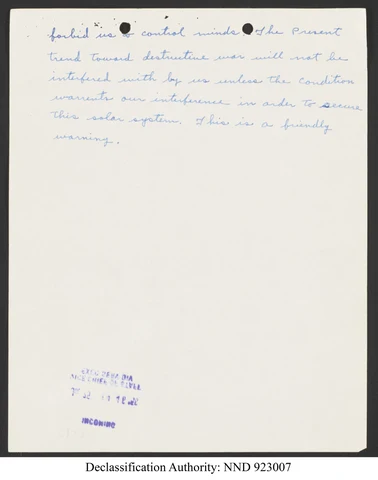 forbid us control minds. The Present
trend toward destructive war will not be
interfered with by us unless the condition
warrants our interference in order to secure
this solar system. This is a friendly
warning.
INCOMING
Declassification Authority: NND 923007